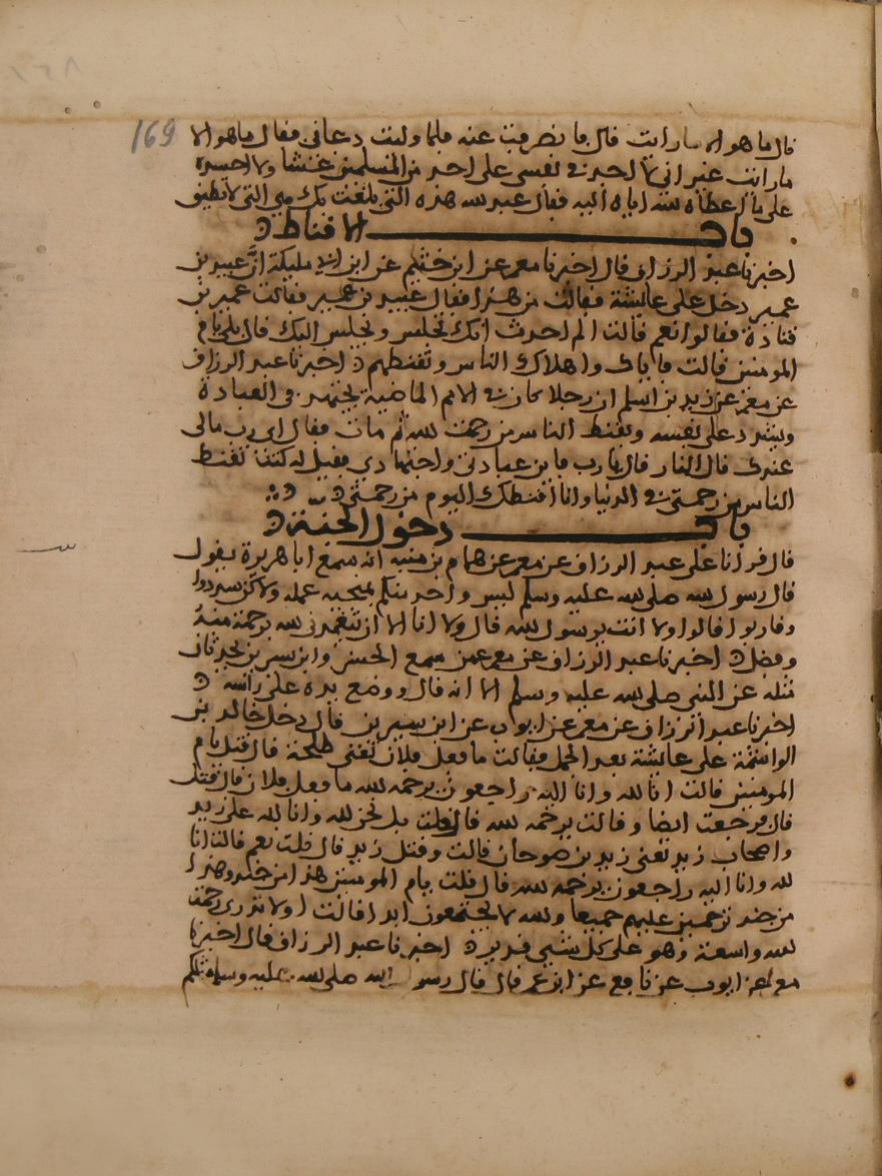 169
قال ما هو الا ما رايت قال فانصرفت عنه فلما وليت دعاني فقال ما هو الا
ما رايت غير اني لا اجد في نفسي على احد من المسلمين غشا ولا احسده
على ما اعطاه الله اياه اليه فقال عبد الله هذه التي بلغت بك وهي التي لا نطيق
باب الاقناط
اخبرنا عبد الرزاق قال اخبرنا معمر عن ابن خثيم عن ابن ابي مليكة ان عبيد بن
عمير دخل على عائشة فقالت من هذا فقال عبيد بن عمير فقالت عمير بن
قتادة فقالوا نعم قالت الم احدث انك تجلس ويجلس اليك قال بلى يام
المومنين قالت فاياك واهلاك الناس وتقنيطهم اخبرنا عبد الرزاق
عن معمر عن زيد بن اسلم ان رجلا كان في الامم الماضية يجتهد في العبادة
ويشدد على نفسه ويقنط الناس من رحمت الله ثم مات فقال اي رب مالي
عندك قال النار قال يا رب فاين عبادتي واجتهادي فقيل له كنت تقنط
الناس من رحمتي في الدنيا وانا اقنطك اليوم من رحمتي
باب دخول الجنة
قال قرانا على عبد الرزاق عن معمر عن همام بن منبه انه سمع ابا هريرة يقول
قال رسول الله صلى الله عليه وسلم ليس واحد منكم بمنجيه عمله ولاكن سددوا
وقاربوا قالوا ولا انت يرسول الله قال ولا انا الا ان يتغمدني الله برحمة منه
وفضل اخبرنا عبد الرزاق عن معمر عمن سمع الحسن وابن سيرين يحدثان
مثله عن النبي صلى الله عليه وسلم الا انه قال ووضع يده على راسه
اخبرنا عبد الرزاق عن معمر عن ايوب عن ابن سيرين قال دخل خالد بن
الواشمة على عائشة بعد الجمل فقالت ما فعل فلان تعني طلحة قال قتل يام
المومنين قالت انا لله وانا اليه راجعون يرحمه الله ما فعل فلان قال قتل
قال فرجعت ايضا وقالت يرحمه الله قال قلت بل نحن لله وانا لله على زيد
واصحاب زيد تعني زيد بن صوحان قالت وقتل زيد قال قلت نعم قالت انا
لله وانا اليه راجعون يرحمه الله قال قلت يام المومنين هذا من جند وهذا
من جند ترحمين عليهم جميعا والله لا يجتمعون ابدا قالت اولا تدري رحمة
الله واسعة وهو على كل شي قدير اخبرنا عبد الرزاق قال اخبرنا
معمر عن ايوب عن نافع عن ابن عمر قال قال رسول الله صلى الله عليه وسلم مثلكم